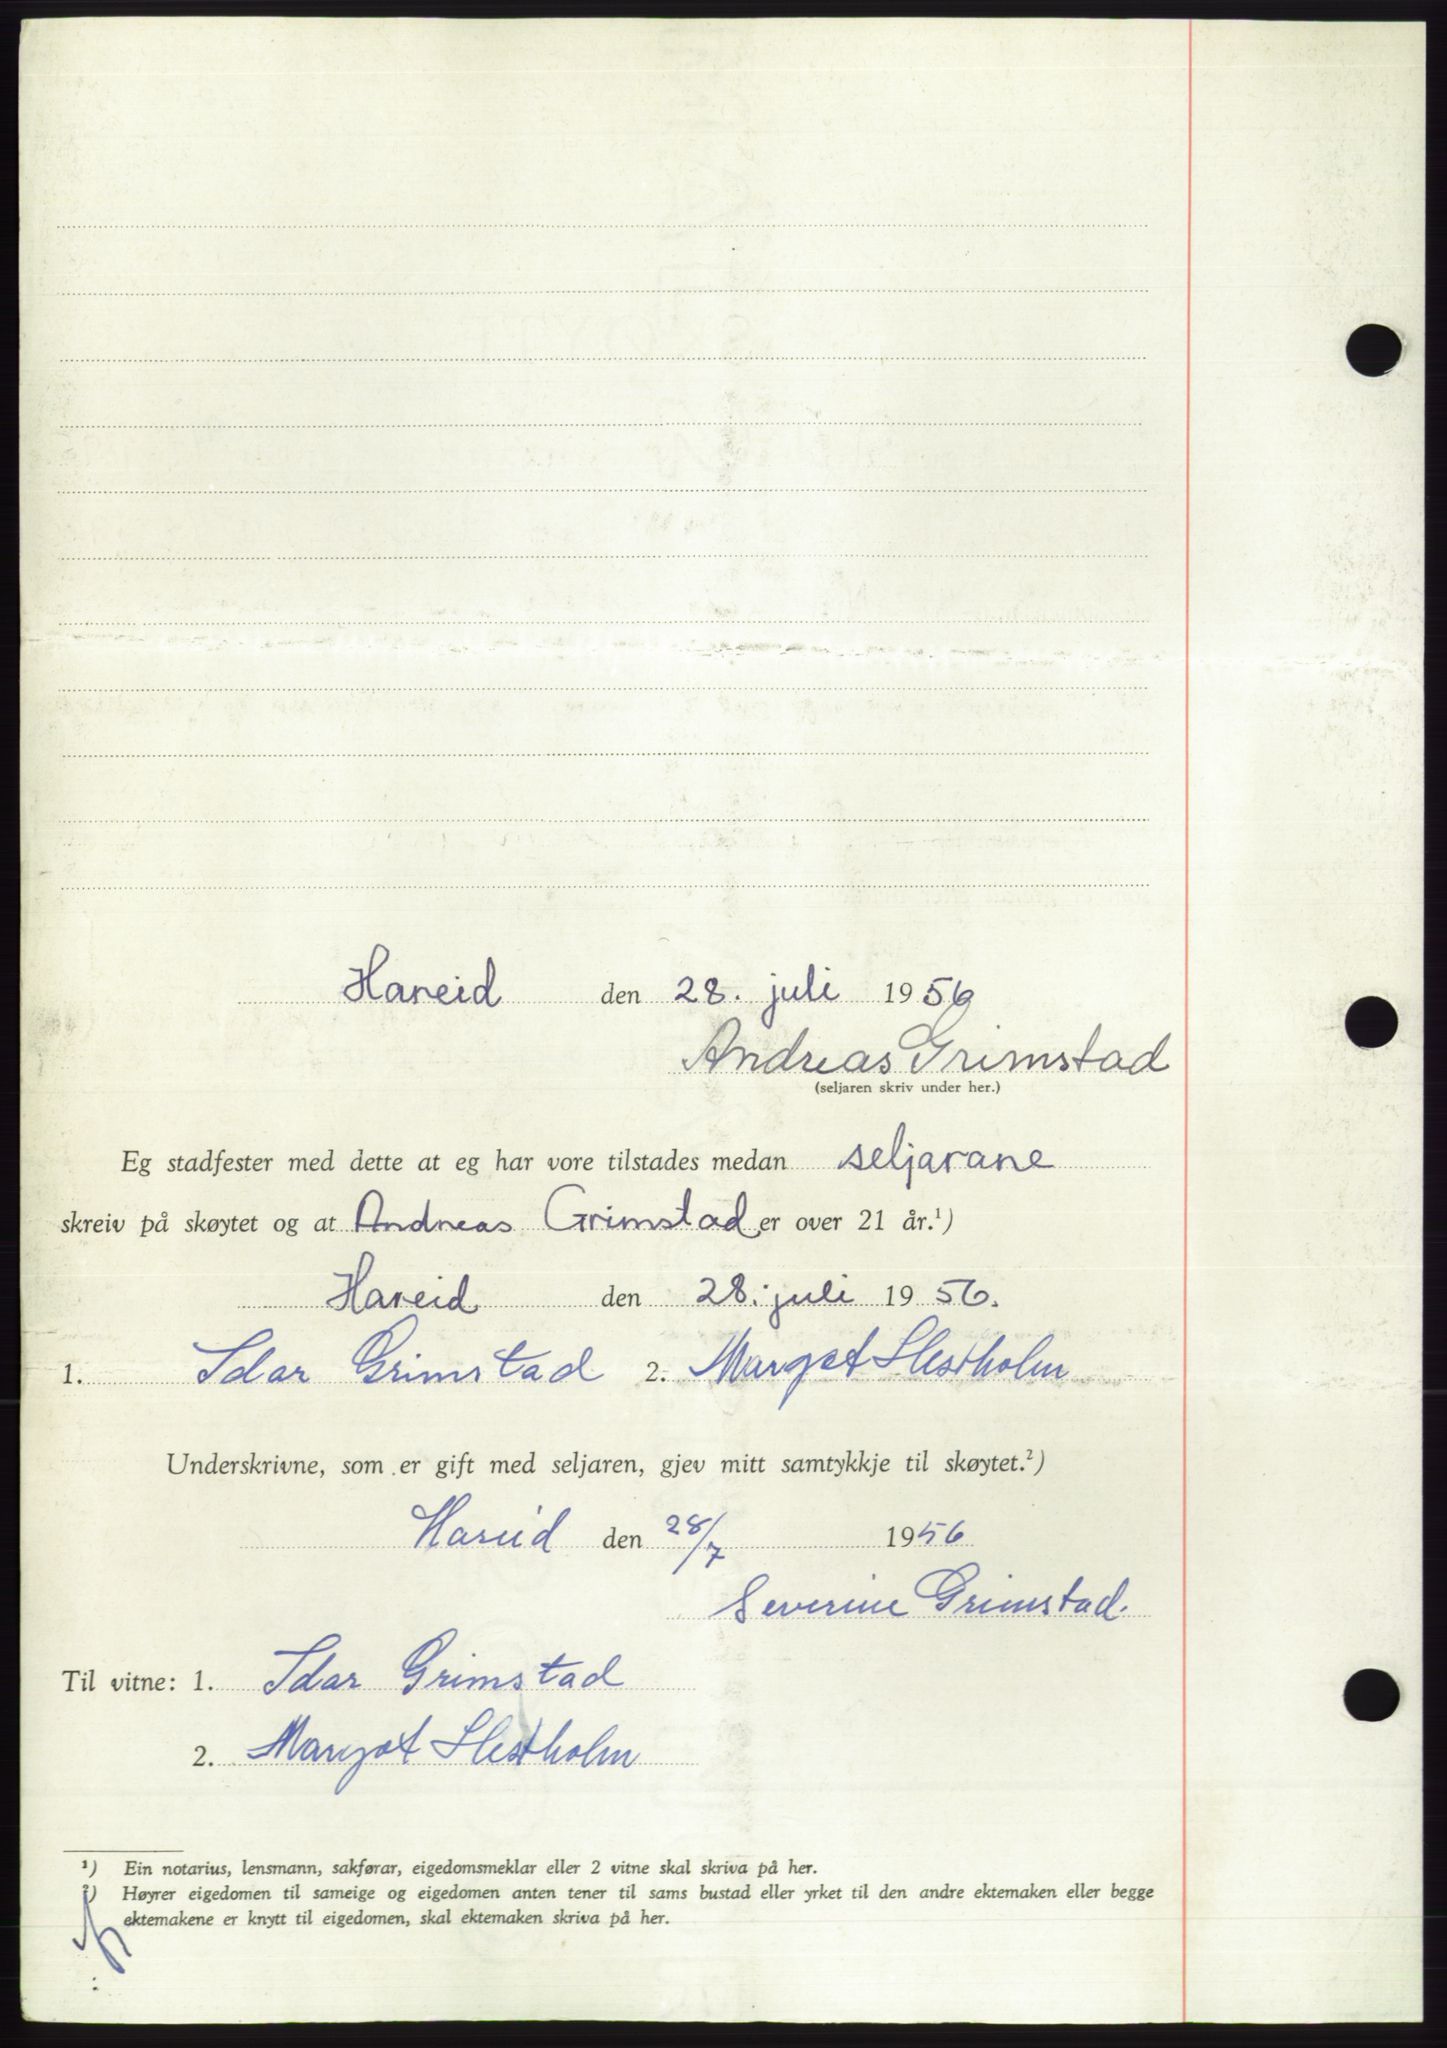 Hareid den 28. juli 1956
Andreas Grimstad
(seljaren skriv under her.)
Eg stadfester med dette at eg har vore tilstades medan seljarane
skreiv på skøytet og at Andreas Grimstad er over 21 år.¹)
Hareid den 28. juli 1956.
1. Idar Grimstad 2. Margot Slestholm
Underskrivne, som er gift med seljaren, gjev mitt samtykkje til skøytet.²)
Hareid den 28/7 1956
Severine Grimstad.
Til vitne: 1. Idar Grimstad
2. Margot Slestholm
¹) Ein notarius, lensmann, sakførar, eigedomsmeklar eller 2 vitne skal skriva på her.
²) Høyrer eigedomen til sameige og eigedomen anten tener til sams bustad eller yrket til den andre ektemaken eller begge
ektemakene er knytt til eigedomen, skal ektemaken skriva på her.